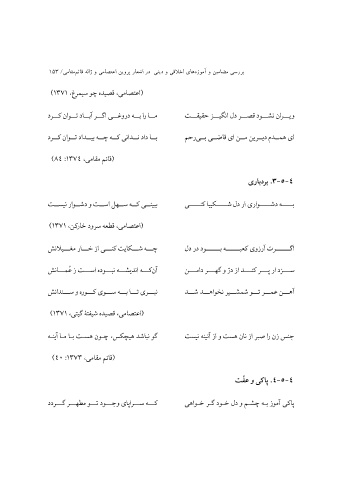 بررسی مضامین و آموزه‌های اخلاقی و دینی در اشعار پروین اعتصامی و ژاله قائم‌مقامی/ ۱۵۳
(اعتصامی، قصیده چو سیمرغ، ۱۳۷۱)
ویـران نشـود قصـر دل انگیـز حقیقـت مـا را بـه دروغـی اگـر آبـاد تـوان کـرد
ای همـدم دیـرین مـن ای قاضـی بـی‌رحم بـا داد نـدانی کـه چـه بیـداد تـوان کـرد
(قائم مقامی، ۱۳۷۴: ۸۴)
۴-۵-۳. بردباری
بـه دشـواری ار دل شـکیبا کنـی بینـی کـه سـهل اسـت و دشـوار نیسـت
(اعتصامی، قطعه سرود خارکن، ۱۳۷۱)
اگـرت آرزوی کعبـه بـود در دل چـه شـکایت کنـی از خـار مغـیلانش
سـزد ار پـر کنـد از درّ و گهـر دامـن آن‌کـه اندیشـه نبـوده اسـت ز عُمّـانش
آهـن عمـر تـو شمشـیر نخواهـد شـد نبـری تـا بـه سـوی کـوره و سـندانش
(اعتصامی، قصیده شیفتهٔ گیتی، ۱۳۷۱)
جنس زن را صبر از نان هست و از آئینه نیست گو نباشد هیچکس، چون هست با ما آینه
(قائم مقامی، ۱۳۷۳: ۴۰)
۴-۵-۴. پاکی و عفّت
پاکی آموز بـه چشـم و دل خـود گـر خـواهی کـه سـراپای وجـود تـو مطهـر گـردد